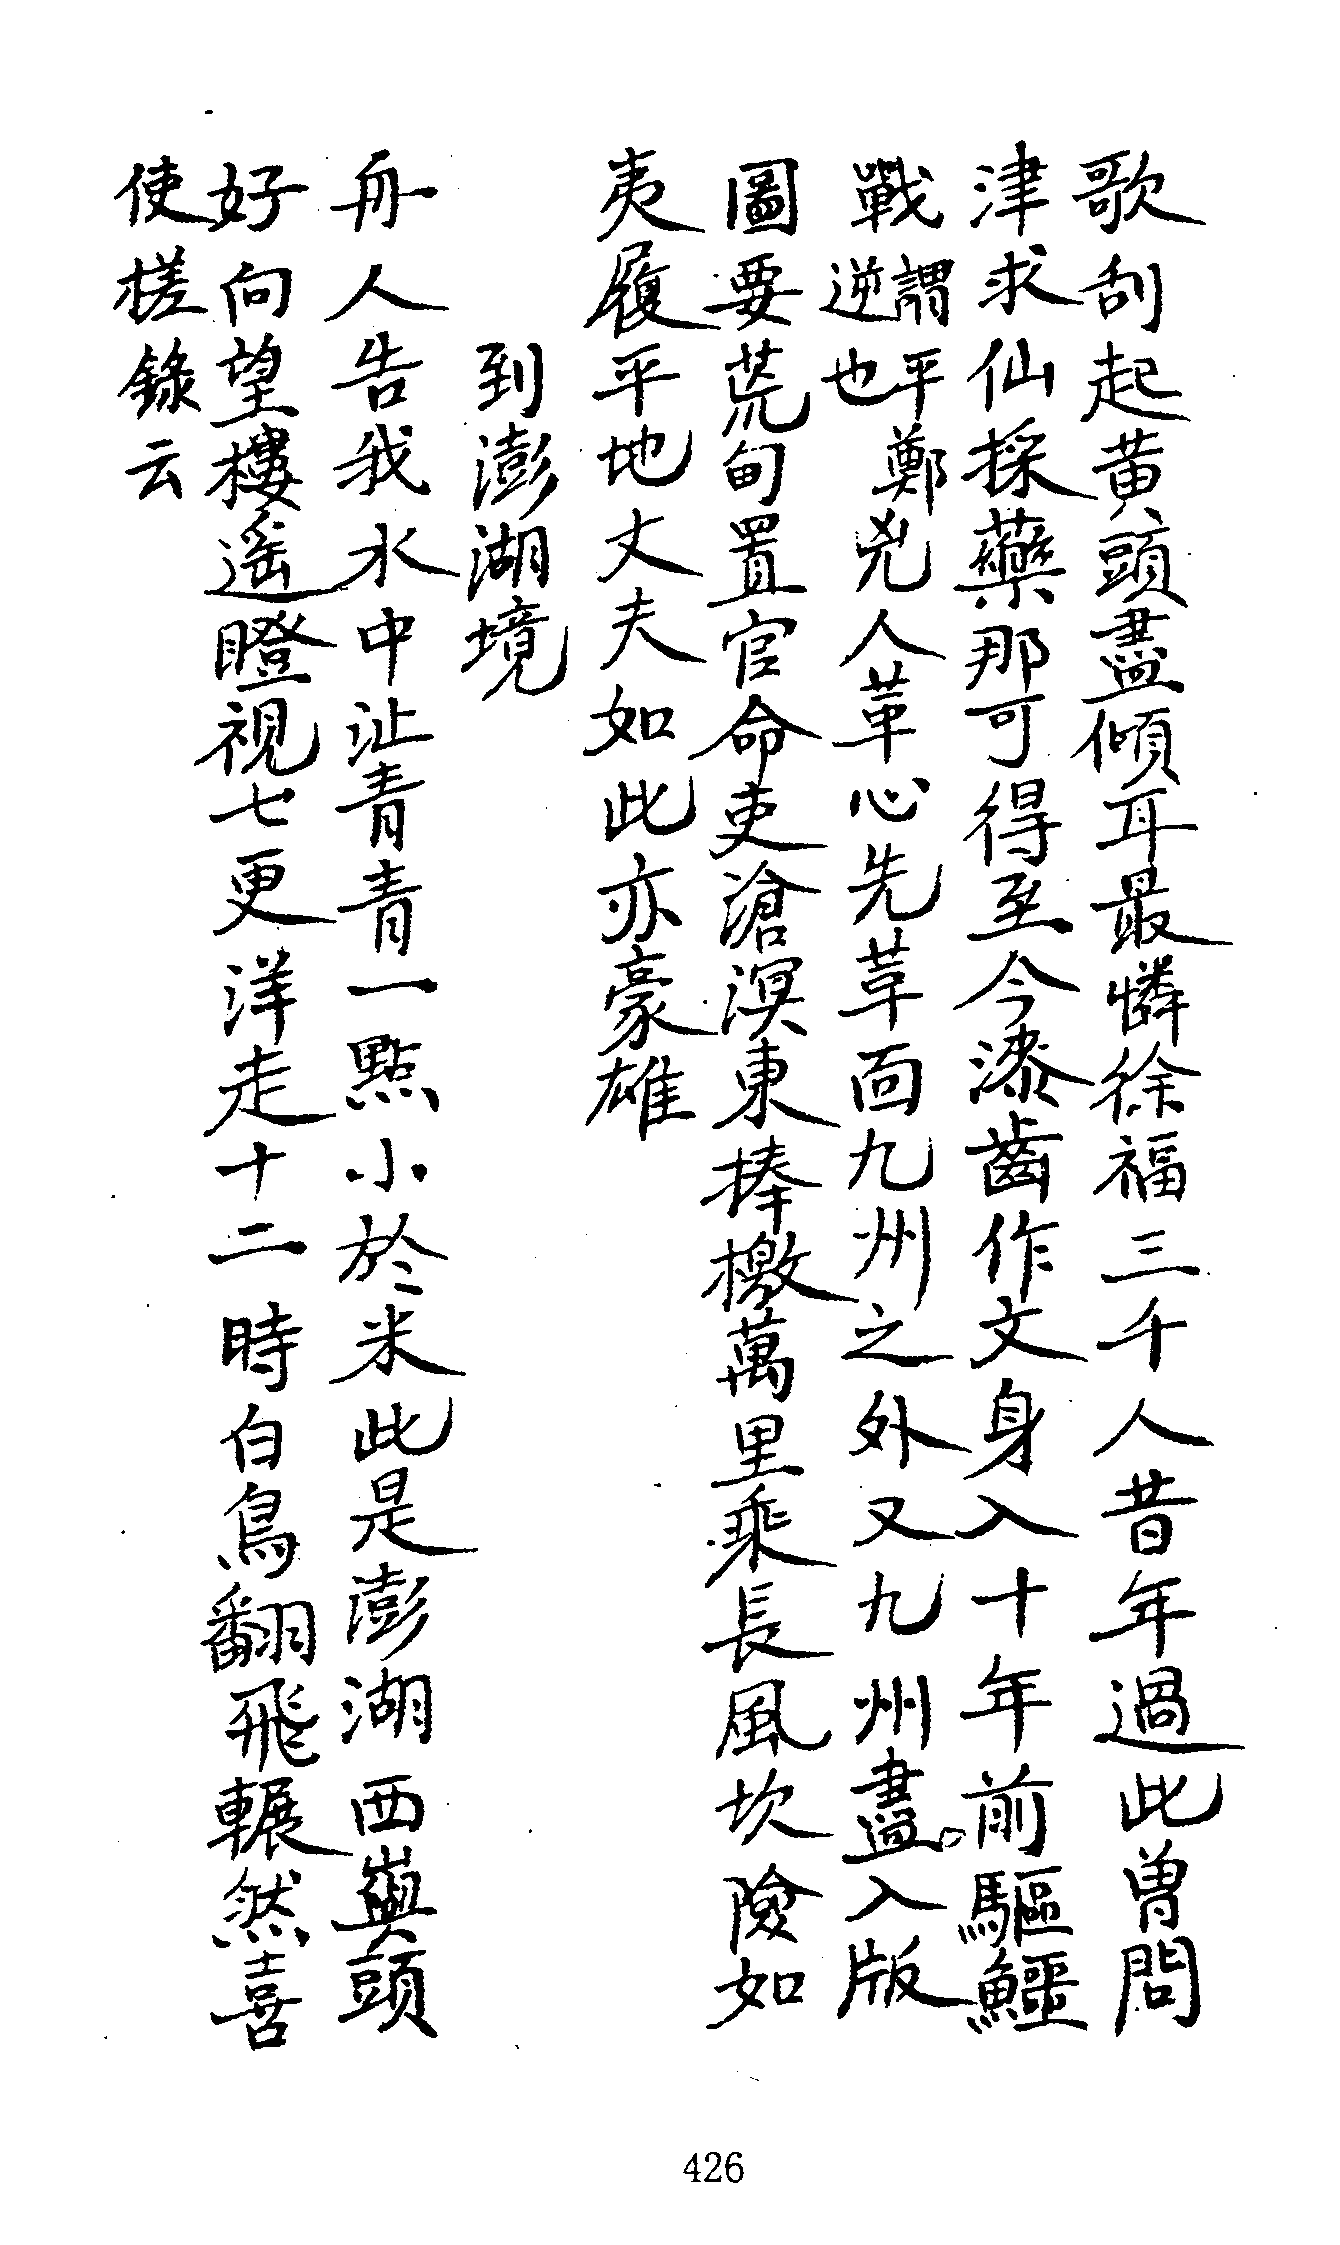 歌刮起黄頭盡傾耳最憐徐福三千人昔年過此曽問
津求仙採藥那可得至今漆齒作文身入十年前驅鱷
戰謂平鄭逆也兇人革心先革面九州之外又九州盡入版
圖要荒甸置官命吏滄溟東捧檄萬里乘長風坎險如
夷履平地丈夫如此亦豪雄
到澎湖境
舟人告我水中沚青青一點小於米此是澎湖西嶼頭
好向望樓遥瞪視七更洋走十二時白鳥翻飛輾然喜
使槎錄云
426